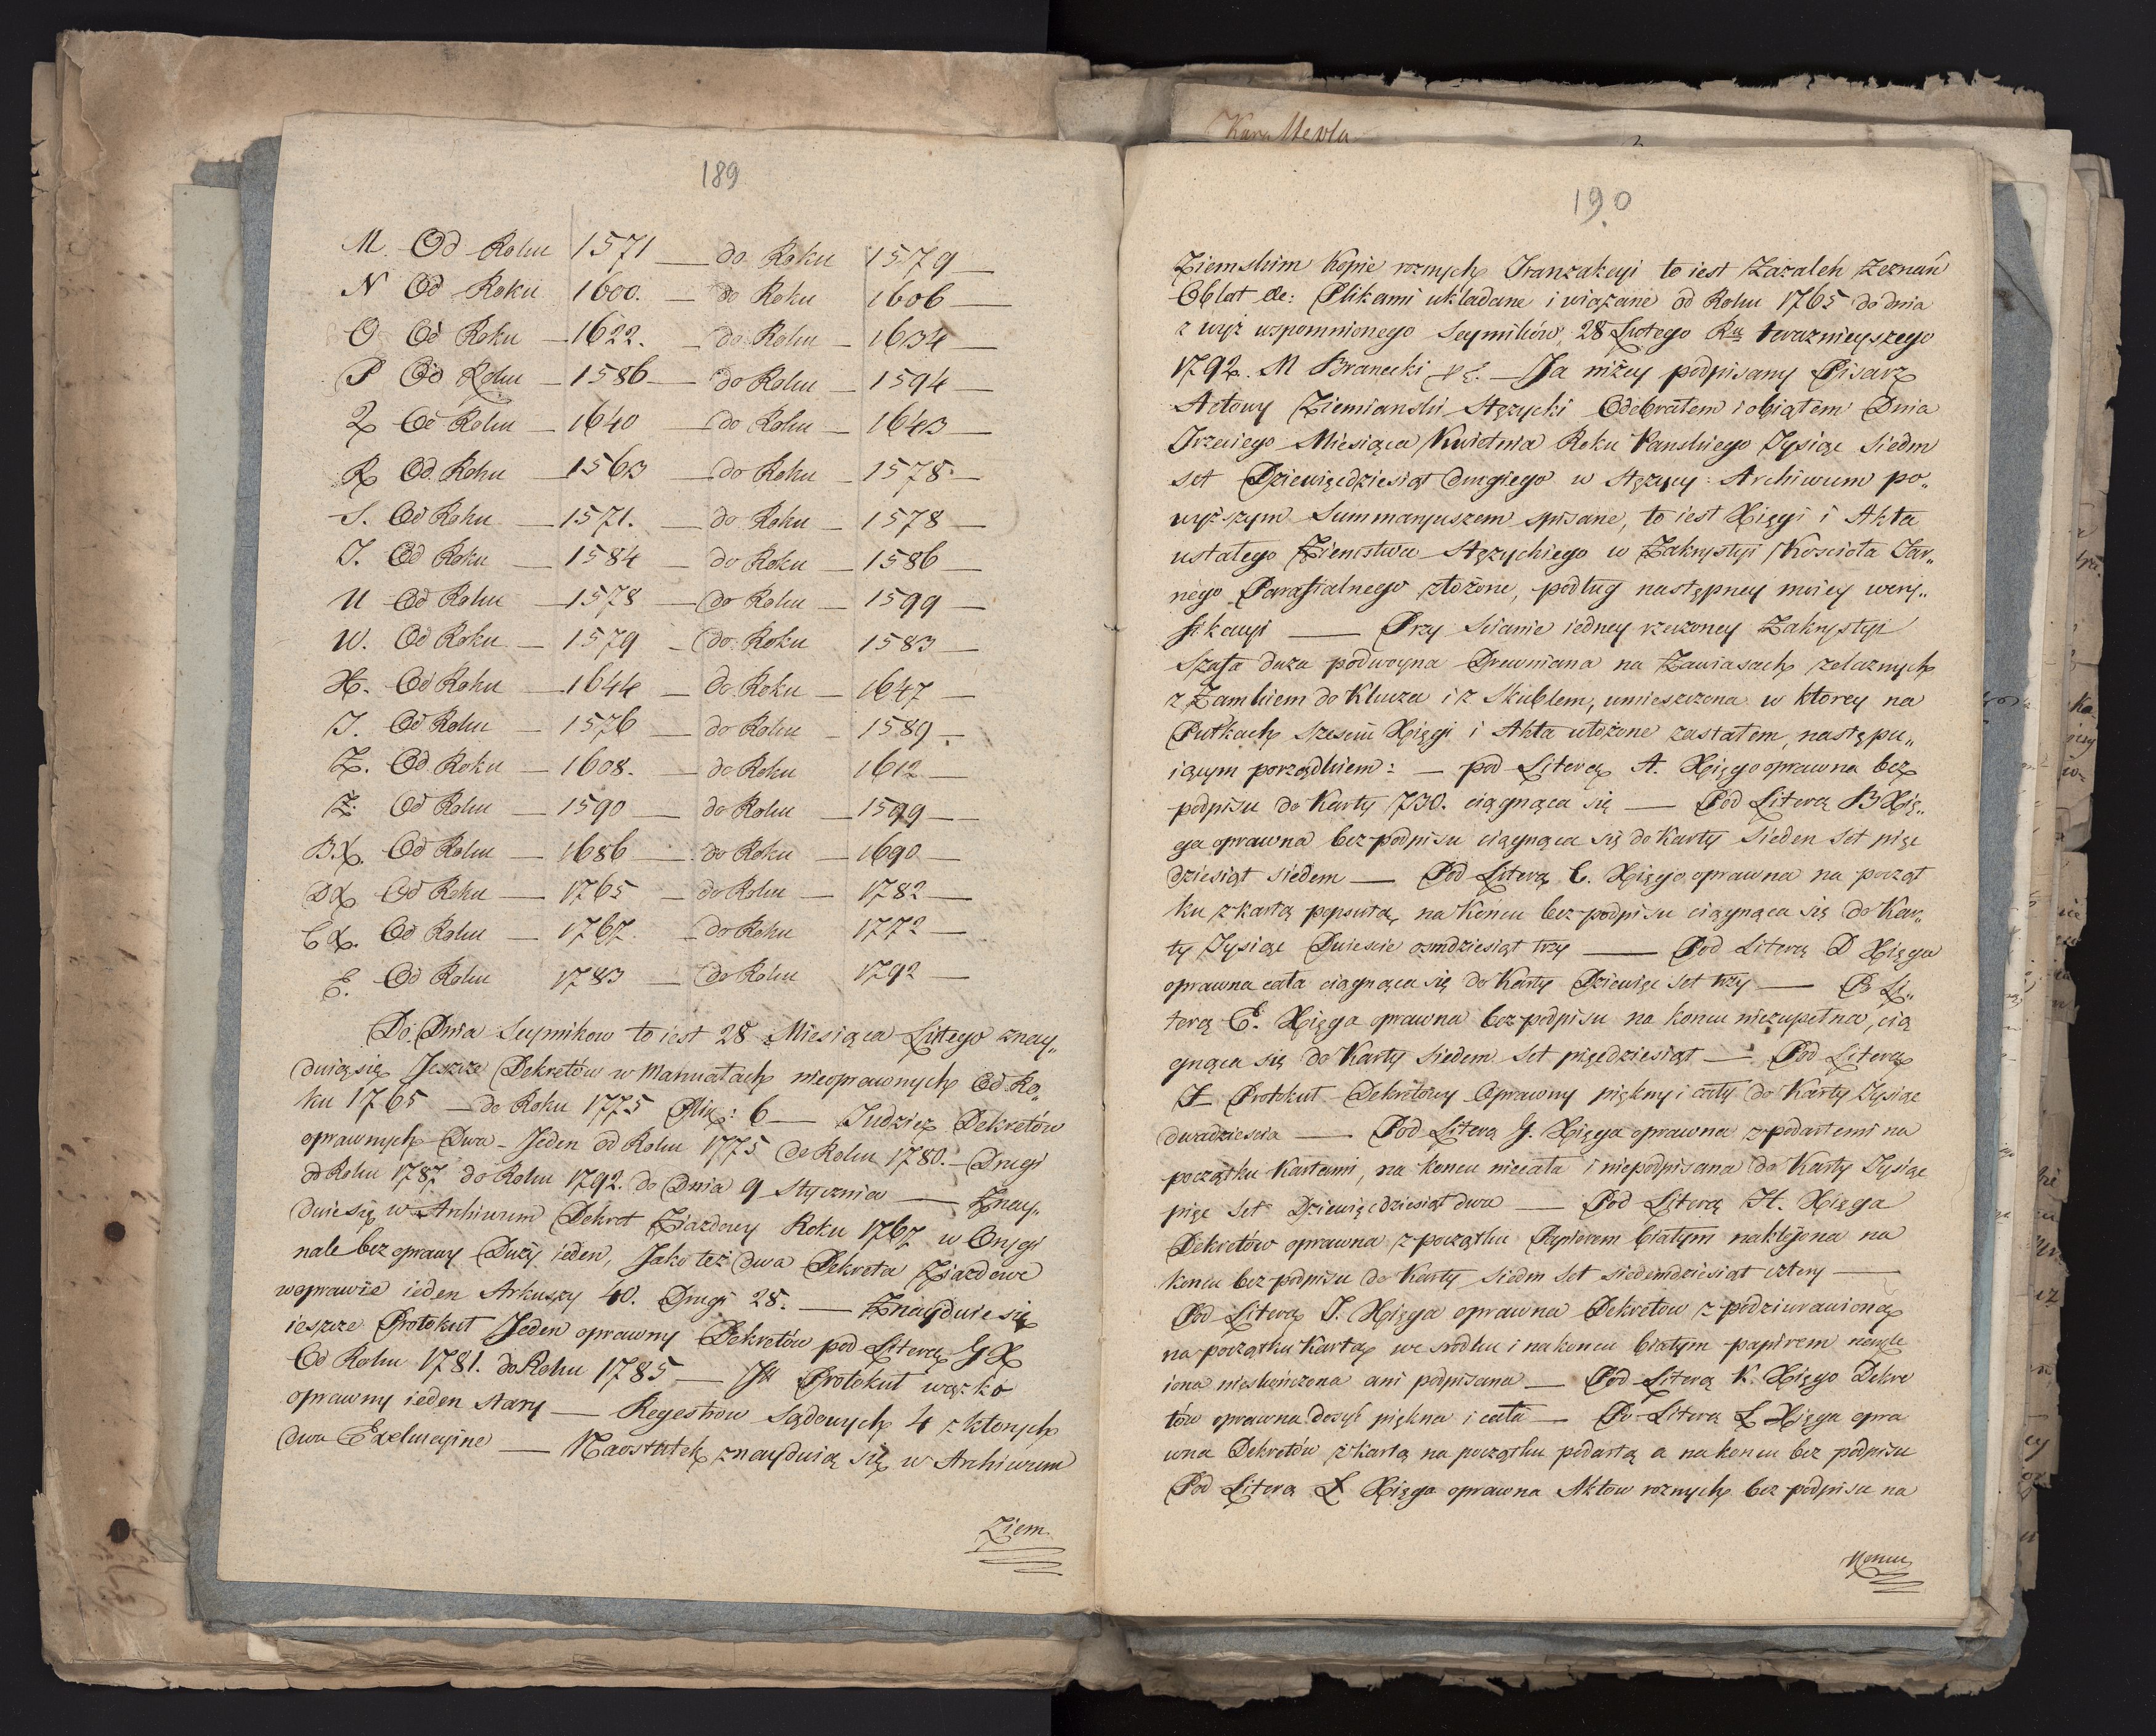 Kara Mewla
189
M. Od Roku 1571 — do Roku 1579 —
N Od Roku 1600. — do Roku 1606 —
O Od Roku — 1622. — do Roku — 1634 —
P Od Roku — 1586 — do Roku — 1594 —
Q Od Roku — 1640 — do Roku — 1643 —
R Od Roku — 1563 — do Roku — 1578 —
S. Od Roku — 1571. — do Roku — 1578 —
T. Od Roku — 1584 — do Roku — 1586 —
U Od Roku — 1578 — do Roku — 1599 —
W. Od Roku — 1579 — do Roku 1583 —
X. Od Roku — 1644 — do Roku — 1647 —
Y. Od Roku — 1576 — do Roku — 1589 —
Z. Od Roku — 1608. — do Roku 1612 —
Ż. Od Roku — 1590 — do Roku — 1599 —
B.X. Od Roku — 1686 — do Roku — 1690 —
DX Od Roku — 1765 — do Roku — 1782 —
CX. Od Roku — 1767. — do Roku 1772 —
E. Od Roku 1783 — do Roku 1792 —
Do Dnia Seymikow to iest 28 Miesiąca Lutego znay„
duią się Jeszcze Dekretów w Manuałach nieoprawnych Od Ro„
ku 1765 — do Roku 1775 Plik: 6 — Indziey Dekretów
oprawnych Dwa — Jeden od Roku 1775 do Roku 1780. — Drugi
od Roku 1787 do Roku 1792. do Dnia 9 Stycznia — Znay„
duie się w Archiwum Dekret Zjazdowy Roku 1767 w Orygi
nale bez oprawy Duży ieden, Jako też dwa Dekreta Zjazdowe
w oprawie ieden Arkuszy 40. Drugi 28. — Znayduie się
ieszcze Protokuł Jeden oprawny Dekretów pod Literą GX
Od Roku 1781. do Roku 1785 — Protokuł wązko
oprawny ieden stary — Regestrow Sądowych 4 z ktorych
dwa Exekucyine — Naostatek znayduią się w Archiwum
Ziem.
190
Ziemskim kopie roznych Tranzakcyi to iest Zażaleń Zeznań
Oblat &c: Plikami układane i wiązane od Roku 1765 do dnia
z wyż wspomnionego Seymików 28 Lutego Ru teraznieyszego
1792. M Branecki — Ja niżey podpisany Pisarz
Aktowy Ziemianski Stężycki Odebrałem i obiąłem Dnia
Trzeciego Miesiąca Kwietnia Roku Panskiego Tysiąc Siedm
set Dziewięćdziesiąt drugiego w Stężycy Archiwum po„
wyższym Summaryuszem spisane, to iest Xięgi i Akta
ustałego Ziemstwa Stężyckiego w Zakrystyi Kościoła Far„
nego Parafialnego złożone, podług następney moiey wery„
fikacyi — Przy Scianie iedney rzeczoney Zakrystyi
Szafa duża podwoyna Drewniana na Zawiasach zelaznych
z Zamkiem do Klucza i z Skublem, umieszczona w ktorey na
Pułkach Szesciu Xięgi i Akta ułożone zastałem, następu„
iącym porządkiem: — pod Literą A. Xięga oprawna bez
podpisu do Karty 730. ciągnąca się — Pod Literą B Xię„
ga oprawna bez podpisu ciągnąca się do Karty Siedem Set pięć
dziesiąt siedem — Pod Literą C. Xięga oprawna na począt
ku z kartą popsutą na Końcu bez podpisu ciągnąca się do Kar„
ty Tysiąc Dwieście ozmdziesiąt trzy — Pod Literą D Xięga
oprawna cała ciągnąca się do Karty Dziewięć set trzy — Pod Li„
terą E. Xięga oprawna bez podpisu na końcu niezupełna, cią
gnąca się do Karty Siedem set pięćdziesiąt — Pod Literą
F Protokuł Dekretowy Oprawny piękny i cały do Karty Tysiąc
dwadzieścia — Pod Literą G. Xięga oprawna z podartemi na
początku Kartami, na końcu niecała i niepodpisana do Karty Tysiąc
pięć Set Dziewięćdziesiąt dwa — Pod Literą H. Xięga
Dekretów oprawna z początku Papierem białym naklejona na
końcu bez podpisu do Karty Siedm Set siedemdziesiąt cztery —
Pod Literą I. Xięga oprawna Dekretow z podziurawioną
na początku Kartą we srodku i na końcu białym papirem nakle
iona nieskończona ani podpisana — Pod Literą K. Xięga Dekre
tów oprawna dosyć piękna i cała — Po Literą L Xięga opra
wna Dekretów z kartą na początku podartą a na końcu bez podpisu
Pod Literą Ł Xięga oprawna Aktow roznych bez podpisu na
Koncu